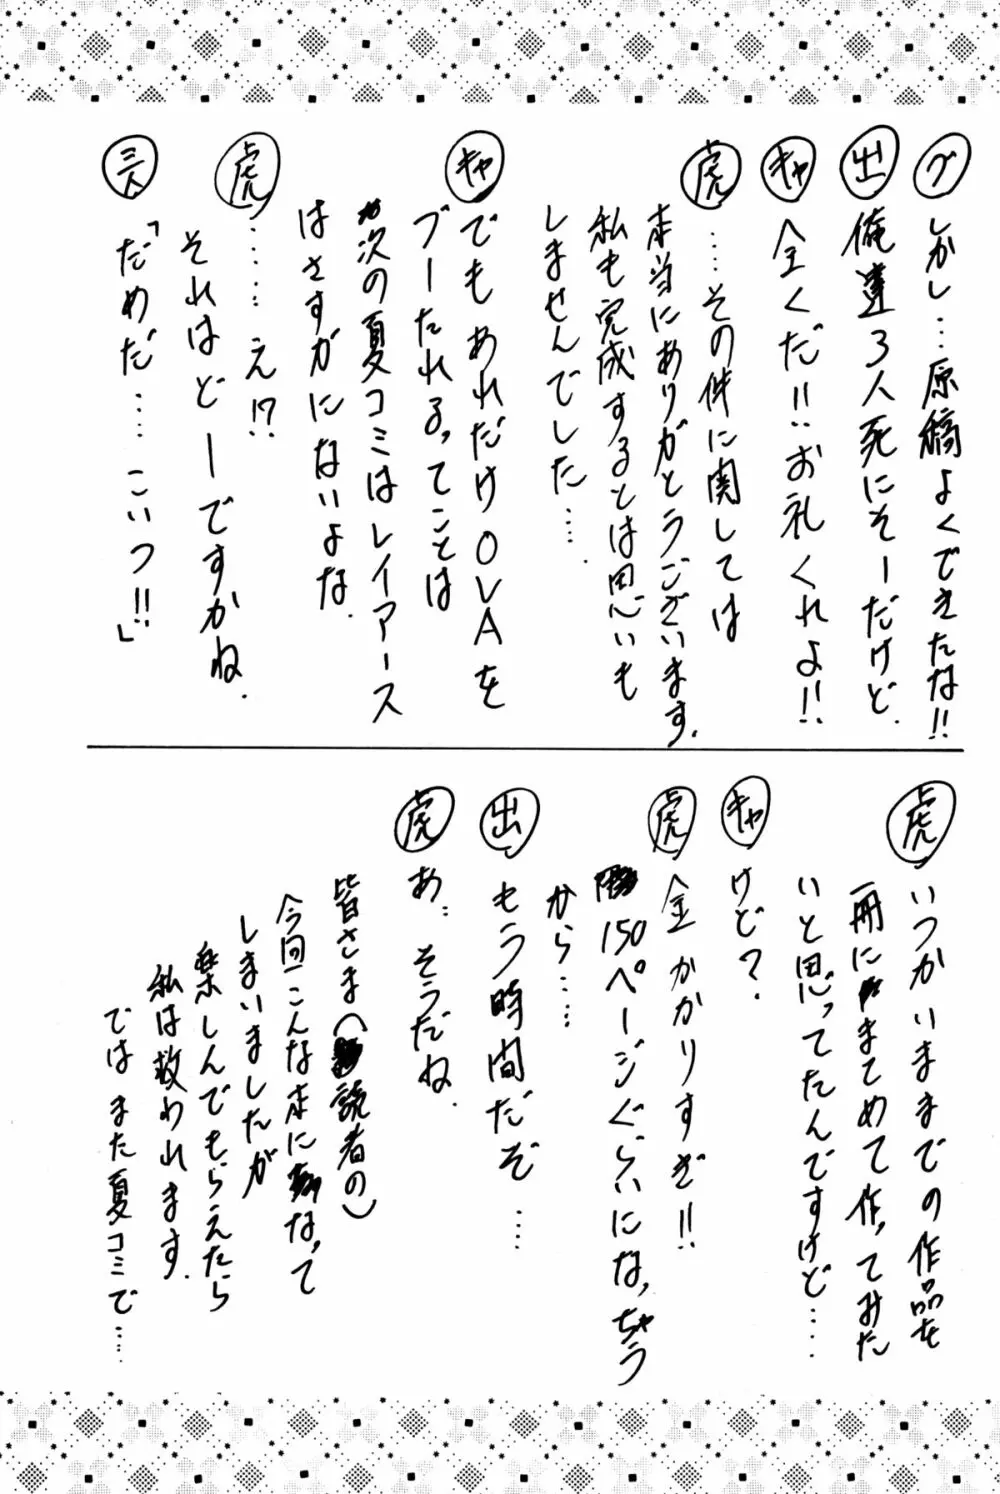 グ しかし…原稿よくできたな!!
出 俺達3人死にそーだけど.
キャ 全くだ!!お礼くれよ!!
虎 ……その件に関しては
本当にありがとうございます.
私も完成するとは思いも
しませんでした……
キャ でもあれだけOVAを
ブーたれるってことは
次の夏コミはレイアース
はさすがにないよな.
虎 ……え!?
それはどーですかね.
三人 「だめだ……こいつ!!」
虎 いつかいままでの作品を
一冊にまとめて作ってみた
いと思ってたんですけど……
キャ けど?
虎 金かかりすぎ!!
150ページぐらいになっちゃう
から……
出 もう時間だぞ……
虎 あ… そうだね.
皆さま(読者の)
今回こんな本になって
しまいましたが
楽しんでもらえたら
私は救われます.
では また夏コミで……